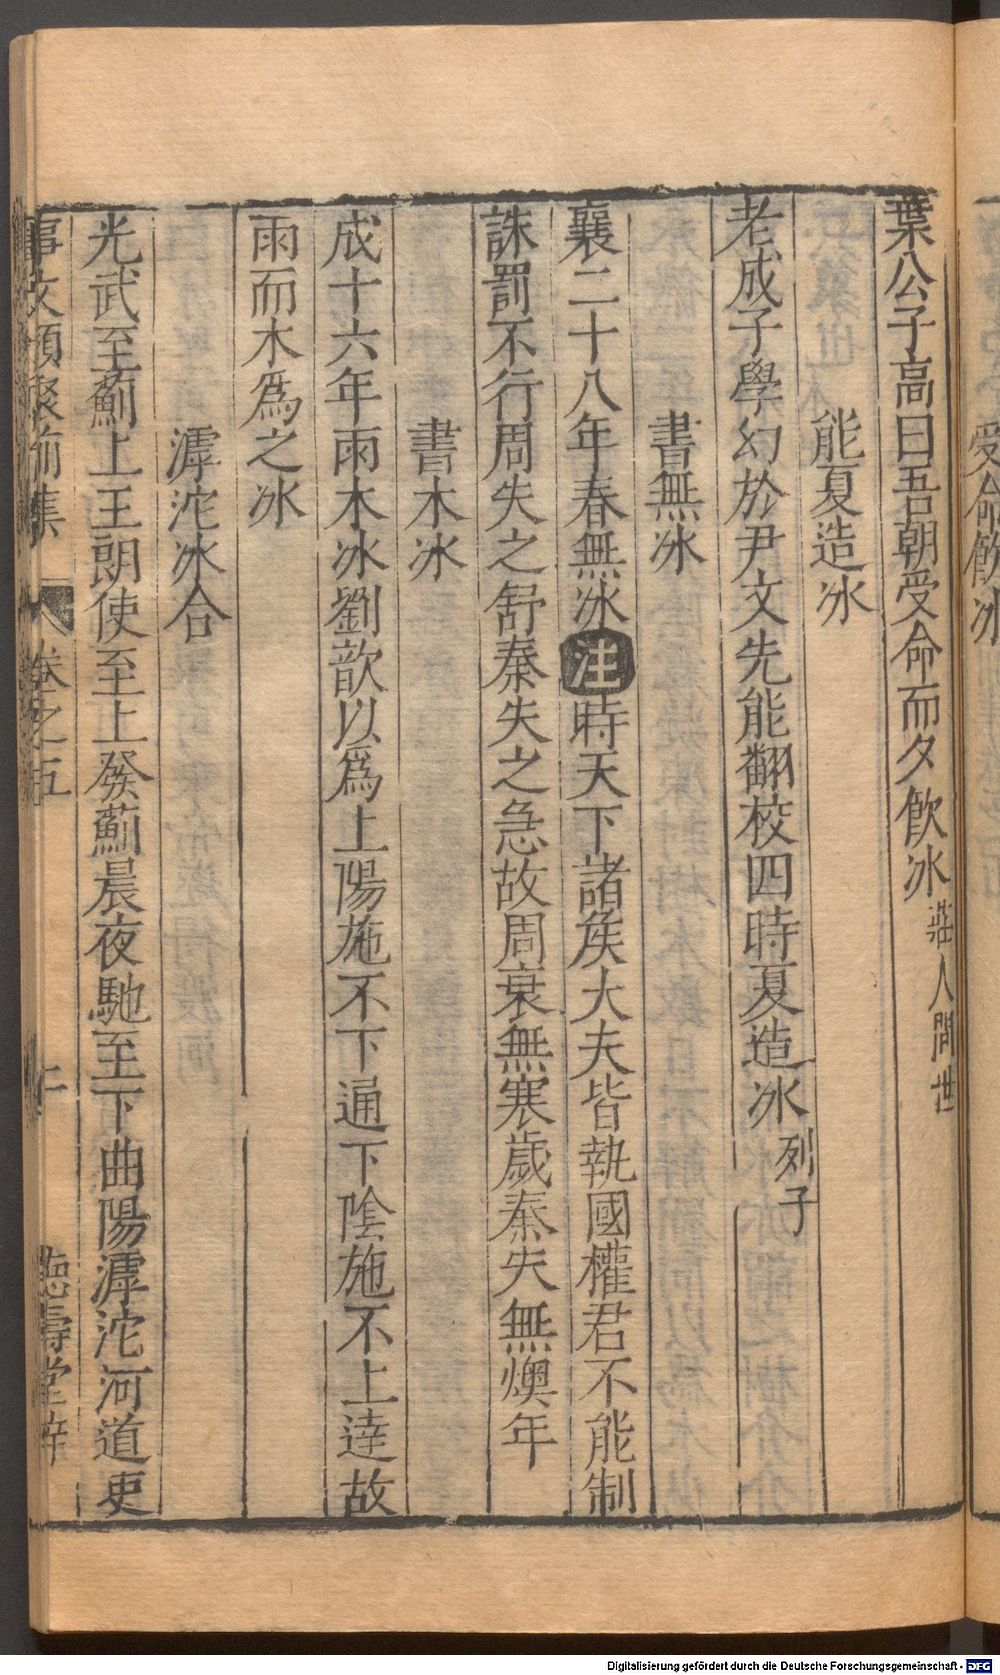 受命飲冰
葉公子高曰吾朝受命而夕飲冰莊人間世
能夏造冰
老成子學幻於尹文先能翻校四時夏造冰列子
書無冰
襄二十八年春無冰注時天下諸侯大夫皆執國權君不能制
誅罰不行周失之舒秦失之急故周衰無寒歲秦失無燠年
書木冰
成十六年雨木冰劉歆以爲上陽施不下通下陰施不上達故
雨而木爲之冰
滹沱冰合
光武至薊上王朗使至上發薊晨夜馳至下曲陽滹沱河道吏
事文類聚前集 卷之五 上 德壽堂梓
Digitalisierung gefördert durch die Deutsche Forschungsgemeinschaft - DFG